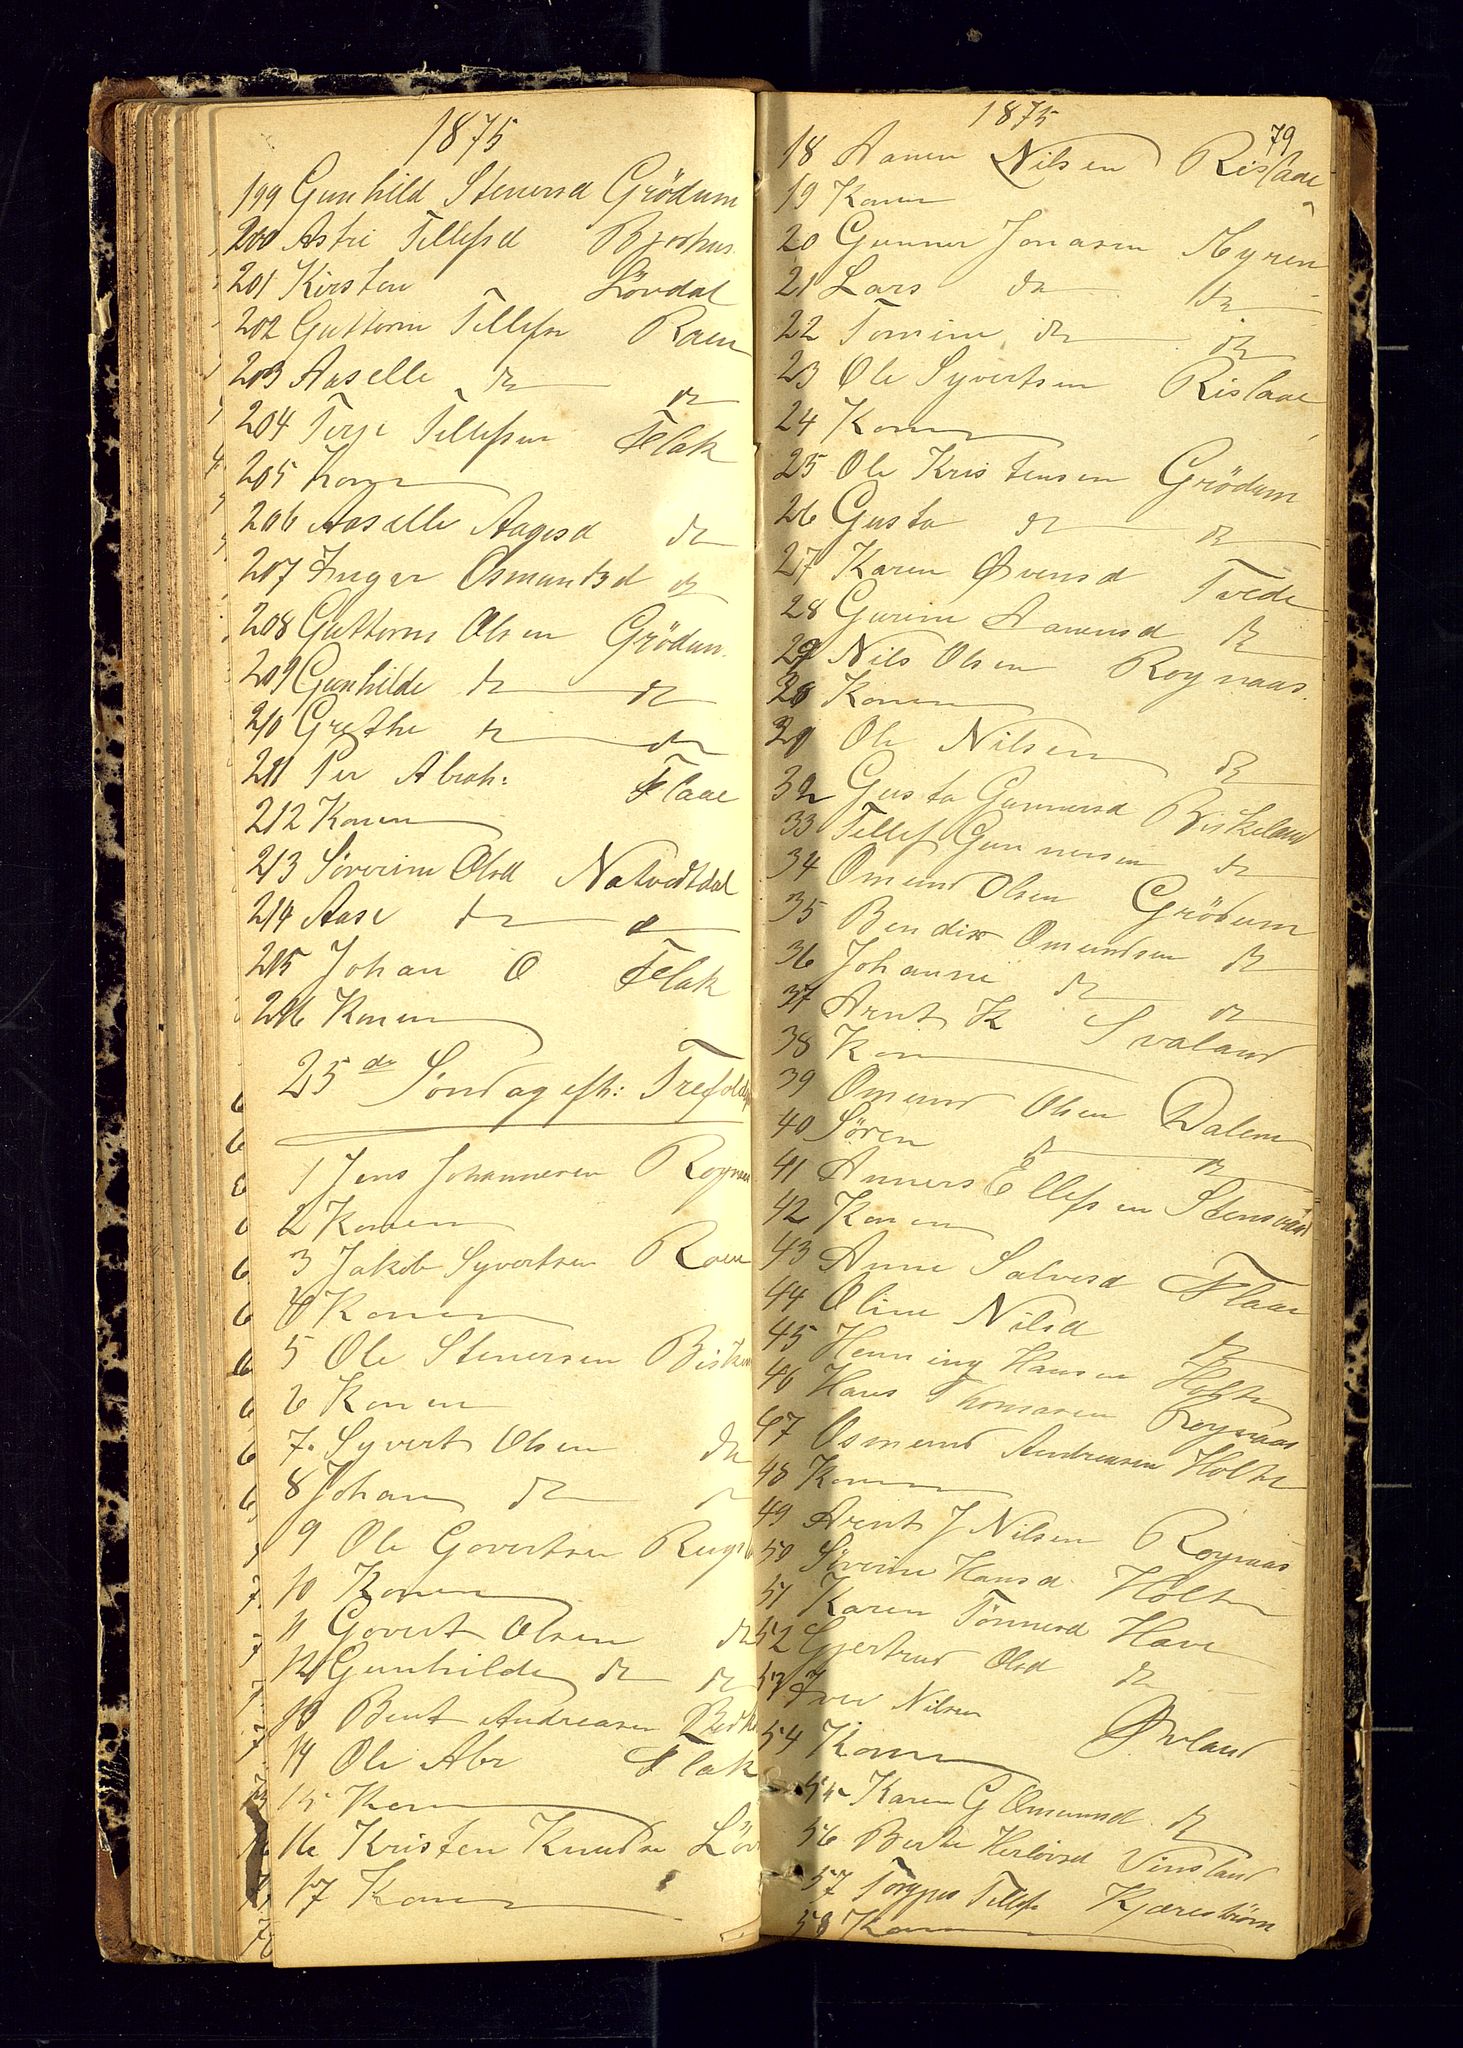 1875
199 Gunhild Stenersd Grödum
200 Astri Tellefsd
201 Kirsten Lövdal
202 Guttorm Tellefsn Roen
203 Aaselle do do
204 Terje Tellefsen Flak
205 Konen
206 Aaselle Aagesd do
207 Inger Osmundsd do
208 Guttorm Olsen Grödum
209 Gunhilde do do
210 Grethe do do
211 Per Abrah: Flaae
212 Konen
213 Søverine Olsd Natvedtdal
214 Aase do do
215 Johan O Flak
216 Konen
25de Søndag efth: Trefold
1 Jens Johannesen Roynaas
2 Konen
3 Jakob Syvertsen Roen
4 Konen
5 Ole Stenersen
6 Konen
7. Syvert Olsen do
8 Johan do
9 Ole Govertsen
10 Konen
11 Govert Olsen do
12 Gunhilde do do
13 Bent Andreasen
14 Ole Abr Flak
15 Kon
16 Kristen Knudsn Löv
17 Konen
1875
79
18 Aanen Nilsen Rislaae
19 Konen
20 Gunner Jonasen Myren
21 Lars do do
22 Tomine do do
23 Ole Syvertsen Rislaae
24 Konen
25 Ole Kristensen Grödum
26 Gusta do do
27 Karen Øvensd Tvede
28 Gurine Aanensd do
29 Nils Olsen Roynaas.
30 Konen
31 Ole Nilsen do
32 Gusta Gunnersd Birkeland
33 Tellef Gunnersen do
34 Omund Olsen Grödum
35 Bendix Omundsen do
36 Johanne do do
37 Arnt K Svaland
38 Kon
39 Omund Olsen Dalen
40 Søren do do
41 Anners Ellefsen
42 Konen
43 Anne Salvesd Flaae
44 Oline Nilsd do
45 Henning Hansen Holte
46 Hans Thomasen Roynaas
47 Osmund Andreasen Holte
48 Konen
49 Arnt J Nilsen Roynaas
50 Søverine Hansd Holte
51 Karen Tønnesd Have
52 Gjertrud Olsd do
53 Iver Nilsen
54 Konen Øvland
55 Karen G Omundsd do
56 Berte Vinsland
57 Tellefs Kjærestrøm
58 Kon